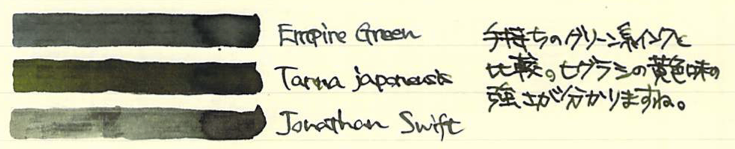 Empire Green
Tanna japonensis
Jonathan Swift
手持ちのグリーン系インクと
比較。ヒグラシの黄色味の
強さが分かりますね。